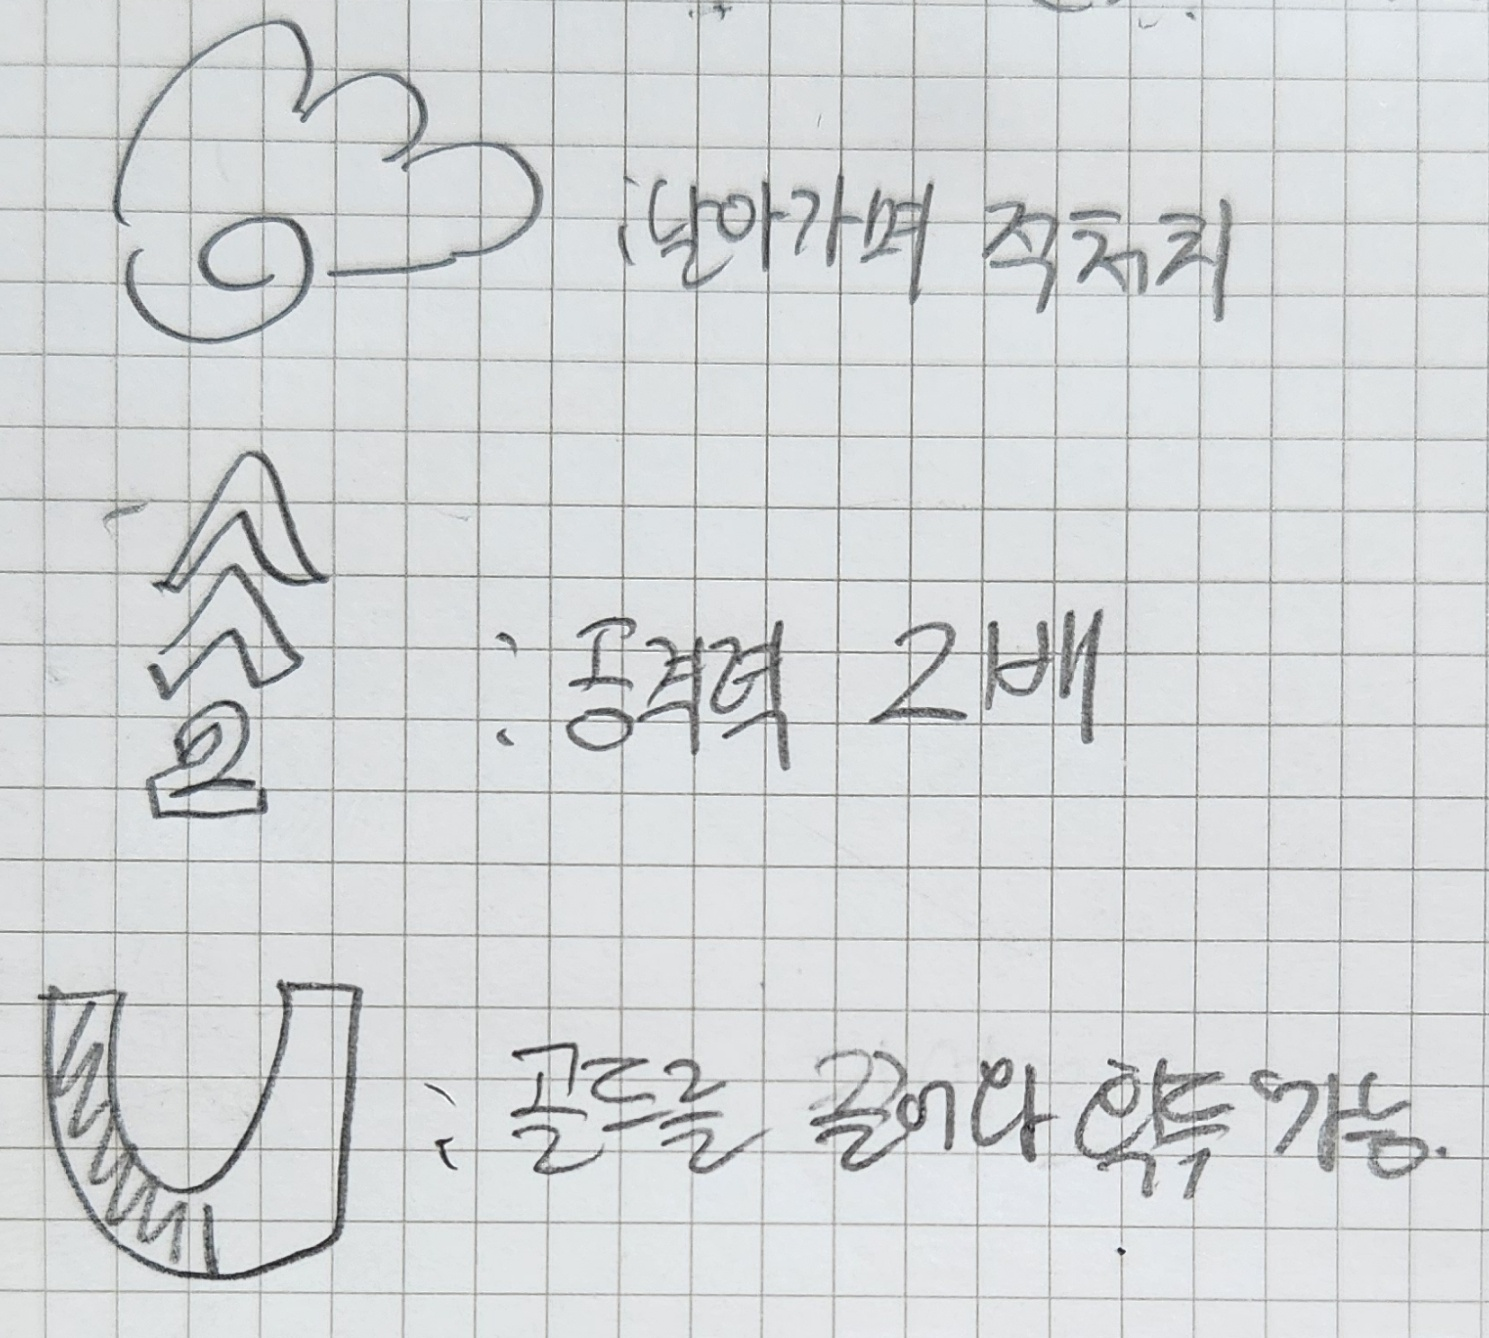 : 날아가며 적처치
2
: 공격력 2배
: 골드를 끌어와 획득 가능.